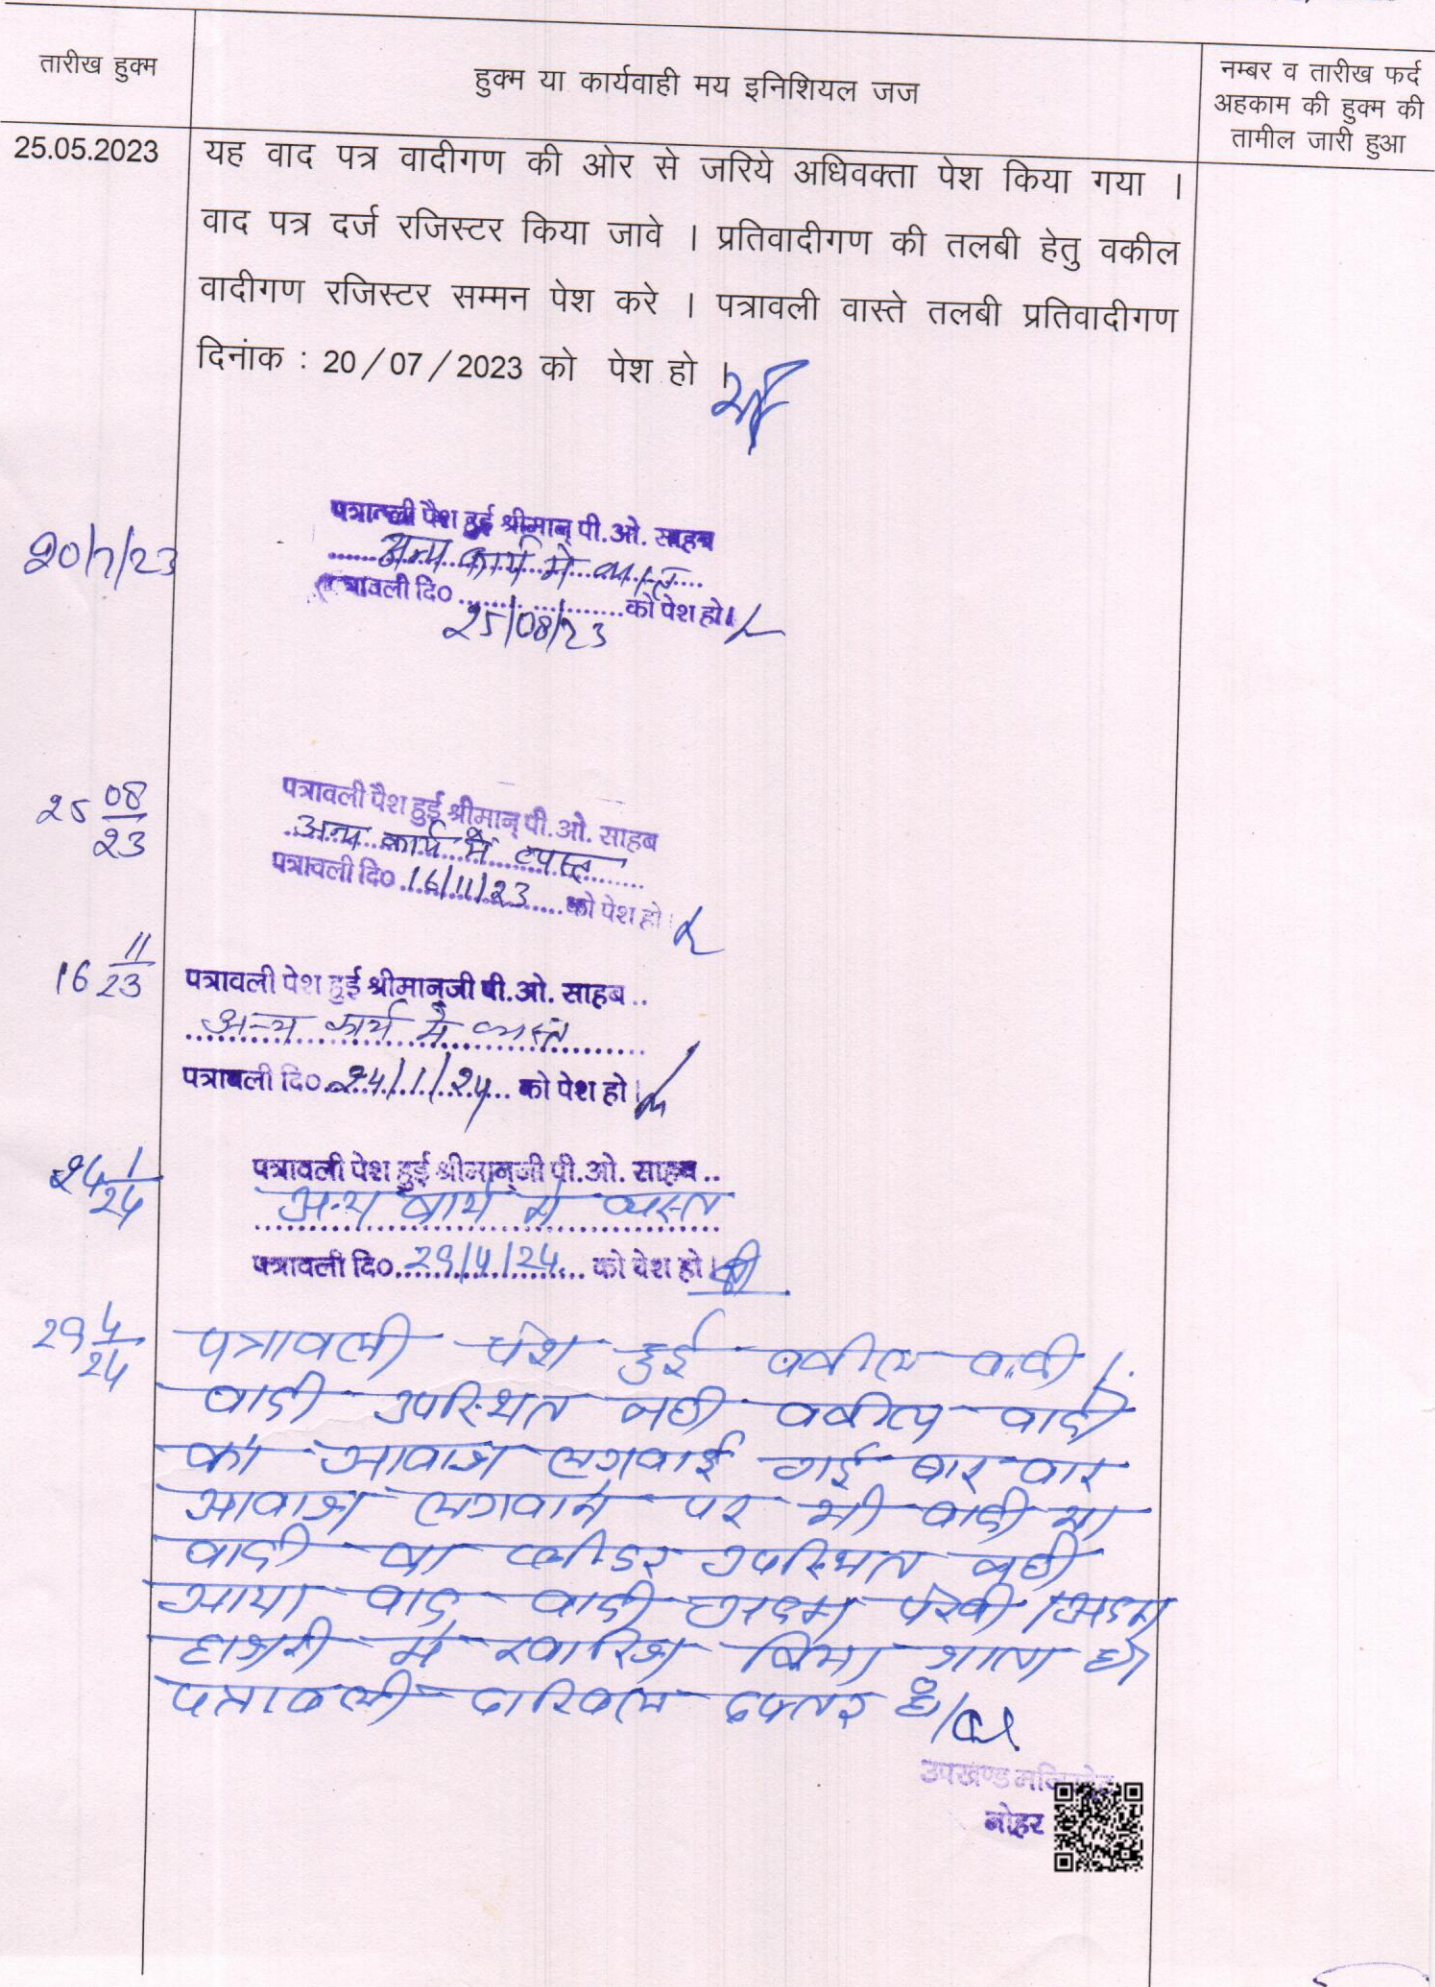 तारीख हुक्म
हुक्म या कार्यवाही मय इनिशियल जज
नम्बर व तारीख फर्द
अहकाम की हुक्म की
तामील जारी हुआ
25.05.2023
यह वाद पत्र वादीगण की ओर से जरिये अधिवक्ता पेश किया गया ।
वाद पत्र दर्ज रजिस्टर किया जावे । प्रतिवादीगण की तलबी हेतु वकील
वादीगण रजिस्टर सम्मन पेश करे । पत्रावली वास्ते तलबी प्रतिवादीगण
दिनांक : 20/07/2023 को पेश हो ।
20/7/23
पत्रावली पेश हुई श्रीमान् पी.ओ. साहब
अन्य कार्य मे व्यस्त
पत्रावली दि० ........ को पेश हो।
25/08/23
25 08/23
पत्रावली पेश हुई श्रीमान् पी.ओ. साहब
अन्य कार्य मे व्यस्त
पत्रावली दि० 16/11/23 को पेश हो।
16 11/23
पत्रावली पेश हुई श्रीमान्जी पी.ओ. साहब ..
अन्य कार्य मे व्यस्त
पत्रावली दि० 24/1/24 को पेश हो।
24 1/24
पत्रावली पेश हुई श्रीमान्जी पी.ओ. साहब ..
अन्य कार्य मे व्यस्त
पत्रावली दि० 29/4/24 को पेश हो।
29 4/24
पत्रावली पेश हुई वकील वादी /
वादी उपस्थित नही वकील वादी
को आवाज लगवाई गई बार बार
आवाज लगवाने पर भी वादी या
वादी का प्लीडर उपस्थित नही
आया वाद वादी अदम पैरवी / अदम
हाजरी मे खारिज किया जाता है
पत्रावली दाखिल दफ्तर हो
उपखण्ड मजिस्ट्रेट
नोहर